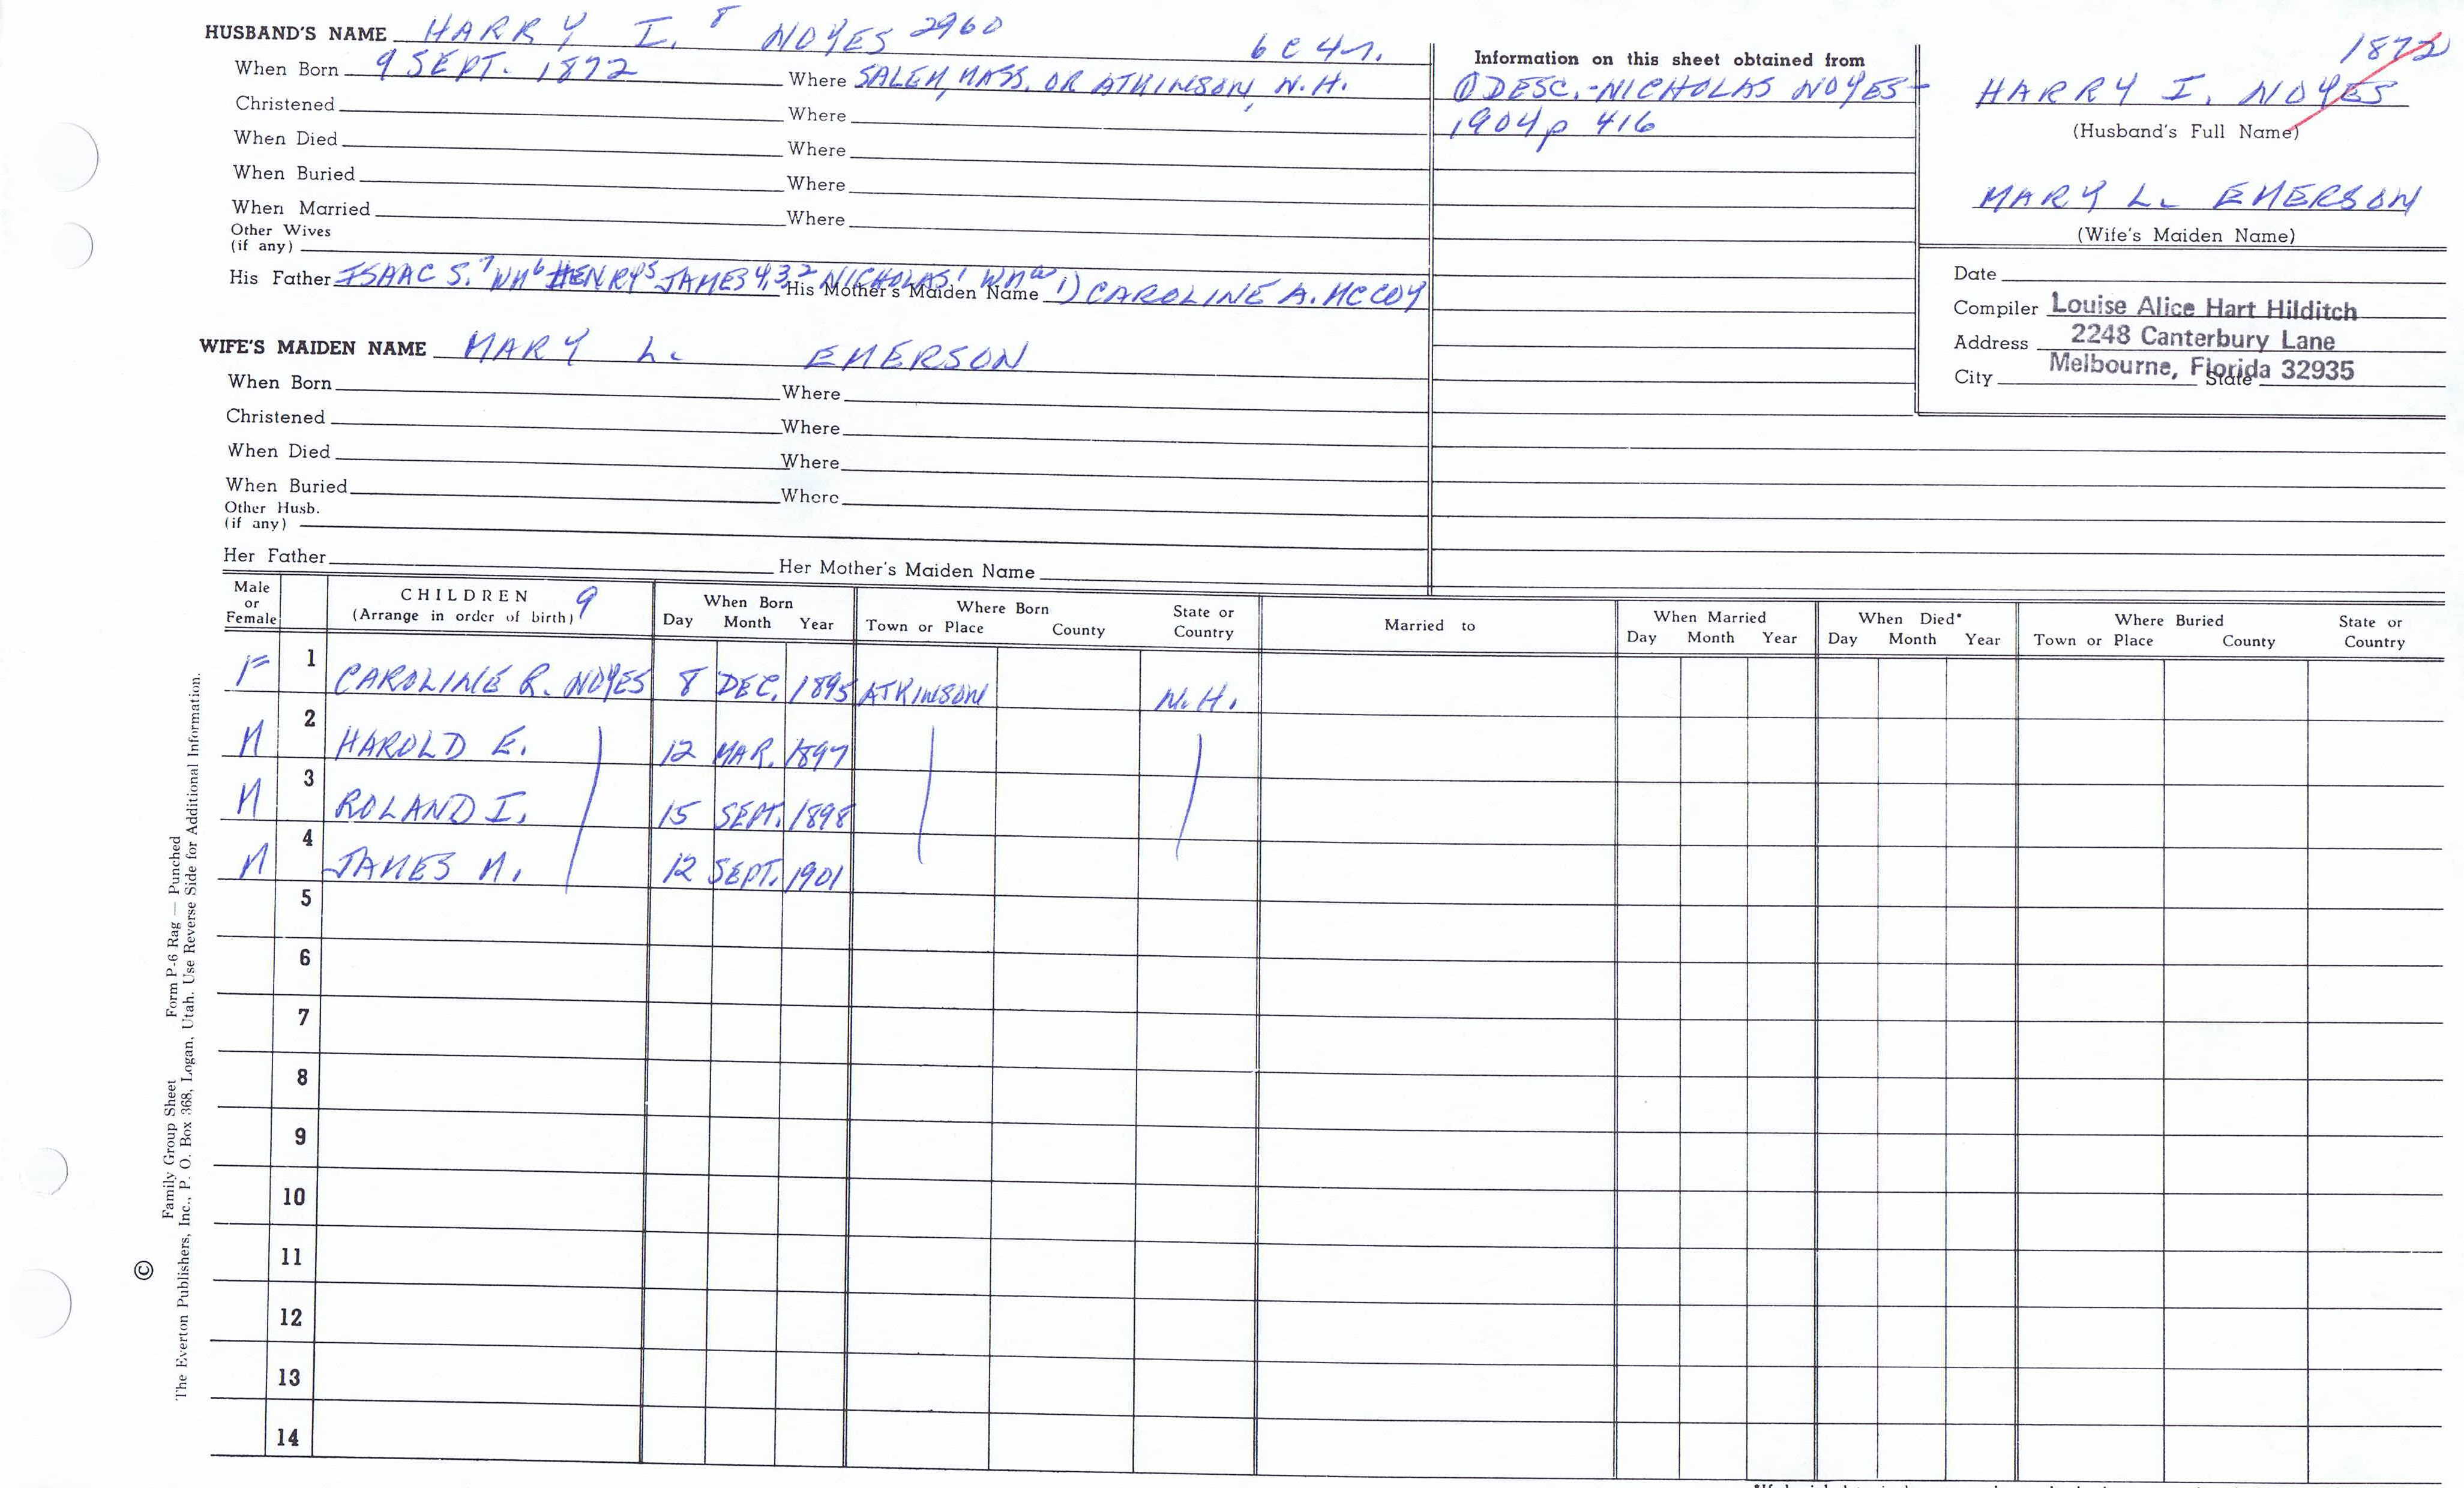 HUSBAND'S NAME HARRY I. 8 NOYES 2960
6 C 4 r.
When Born 9 SEPT. 1872 Where SALEM, MASS. OR ATKINSON, N.H.
Christened Where
When Died Where
When Buried Where
When Married Where
Other Wives
(if any)
His Father ISAAC S.7 WM6 HENRY5 JAMES 4,3,2 NICHOLAS1 WMa His Mother's Maiden Name 1) CAROLINE A. MCCOY
WIFE'S MAIDEN NAME MARY L. EMERSON
When Born Where
Christened Where
When Died Where
When Buried Where
Other Husb.
(if any)
Her Father Her Mother's Maiden Name
Information on this sheet obtained from
① DESC.-NICHOLAS NOYES-
1904 p 416
1872
HARRY I. NOYES
(Husband's Full Name)
MARY L. EMERSON
(Wife's Maiden Name)
Date
Compiler Louise Alice Hart Hilditch
Address 2248 Canterbury Lane
Melbourne, Florida 32935
City State
Male or Female CHILDREN 9 (Arrange in order of birth) When Born Day Month Year Where Born Town or Place County State or Country Married to When Married Day Month Year When Died* Day Month Year Where Buried Town or Place County State or Country
F 1 CAROLINE R. NOYES 8 DEC. 1895 ATKINSON N.H.
M 2 HAROLD E. 12 MAR. 1897
M 3 ROLAND I. 15 SEPT. 1898
M 4 JAMES M. 12 SEPT. 1901
5
6
7
8
9
10
11
12
13
14
Family Group Sheet Form P-6 Rag — Punched
© The Everton Publishers, Inc., P. O. Box 368, Logan, Utah. Use Reverse Side for Additional Information.